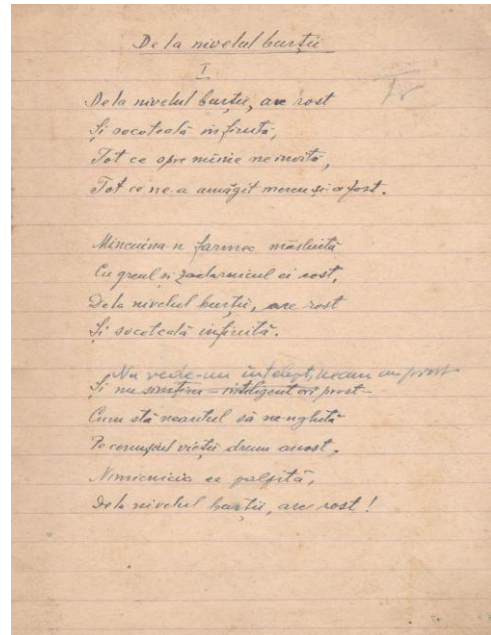 De la nivelul burții
I
Tr
De la nivelul burții, are rost
Și socoteală infinită,
Tot ce spre mînie ne invită,
Tot ce ne-a amăgit mereu și a fost.
Minciuna-n farmec măsluită
Cu greul și zadarnicul ei rost,
De la nivelul burții, are rost
Și socoteală infinită.
Nu vede-un înțelept, necum un prost
Și nu simțim – inteligent ori prost –
Cum stă neantul să ne-nghită
Pe comunul vieții drum anost,
Nimicnicia ce palpită,
De la nivelul burții, are rost!